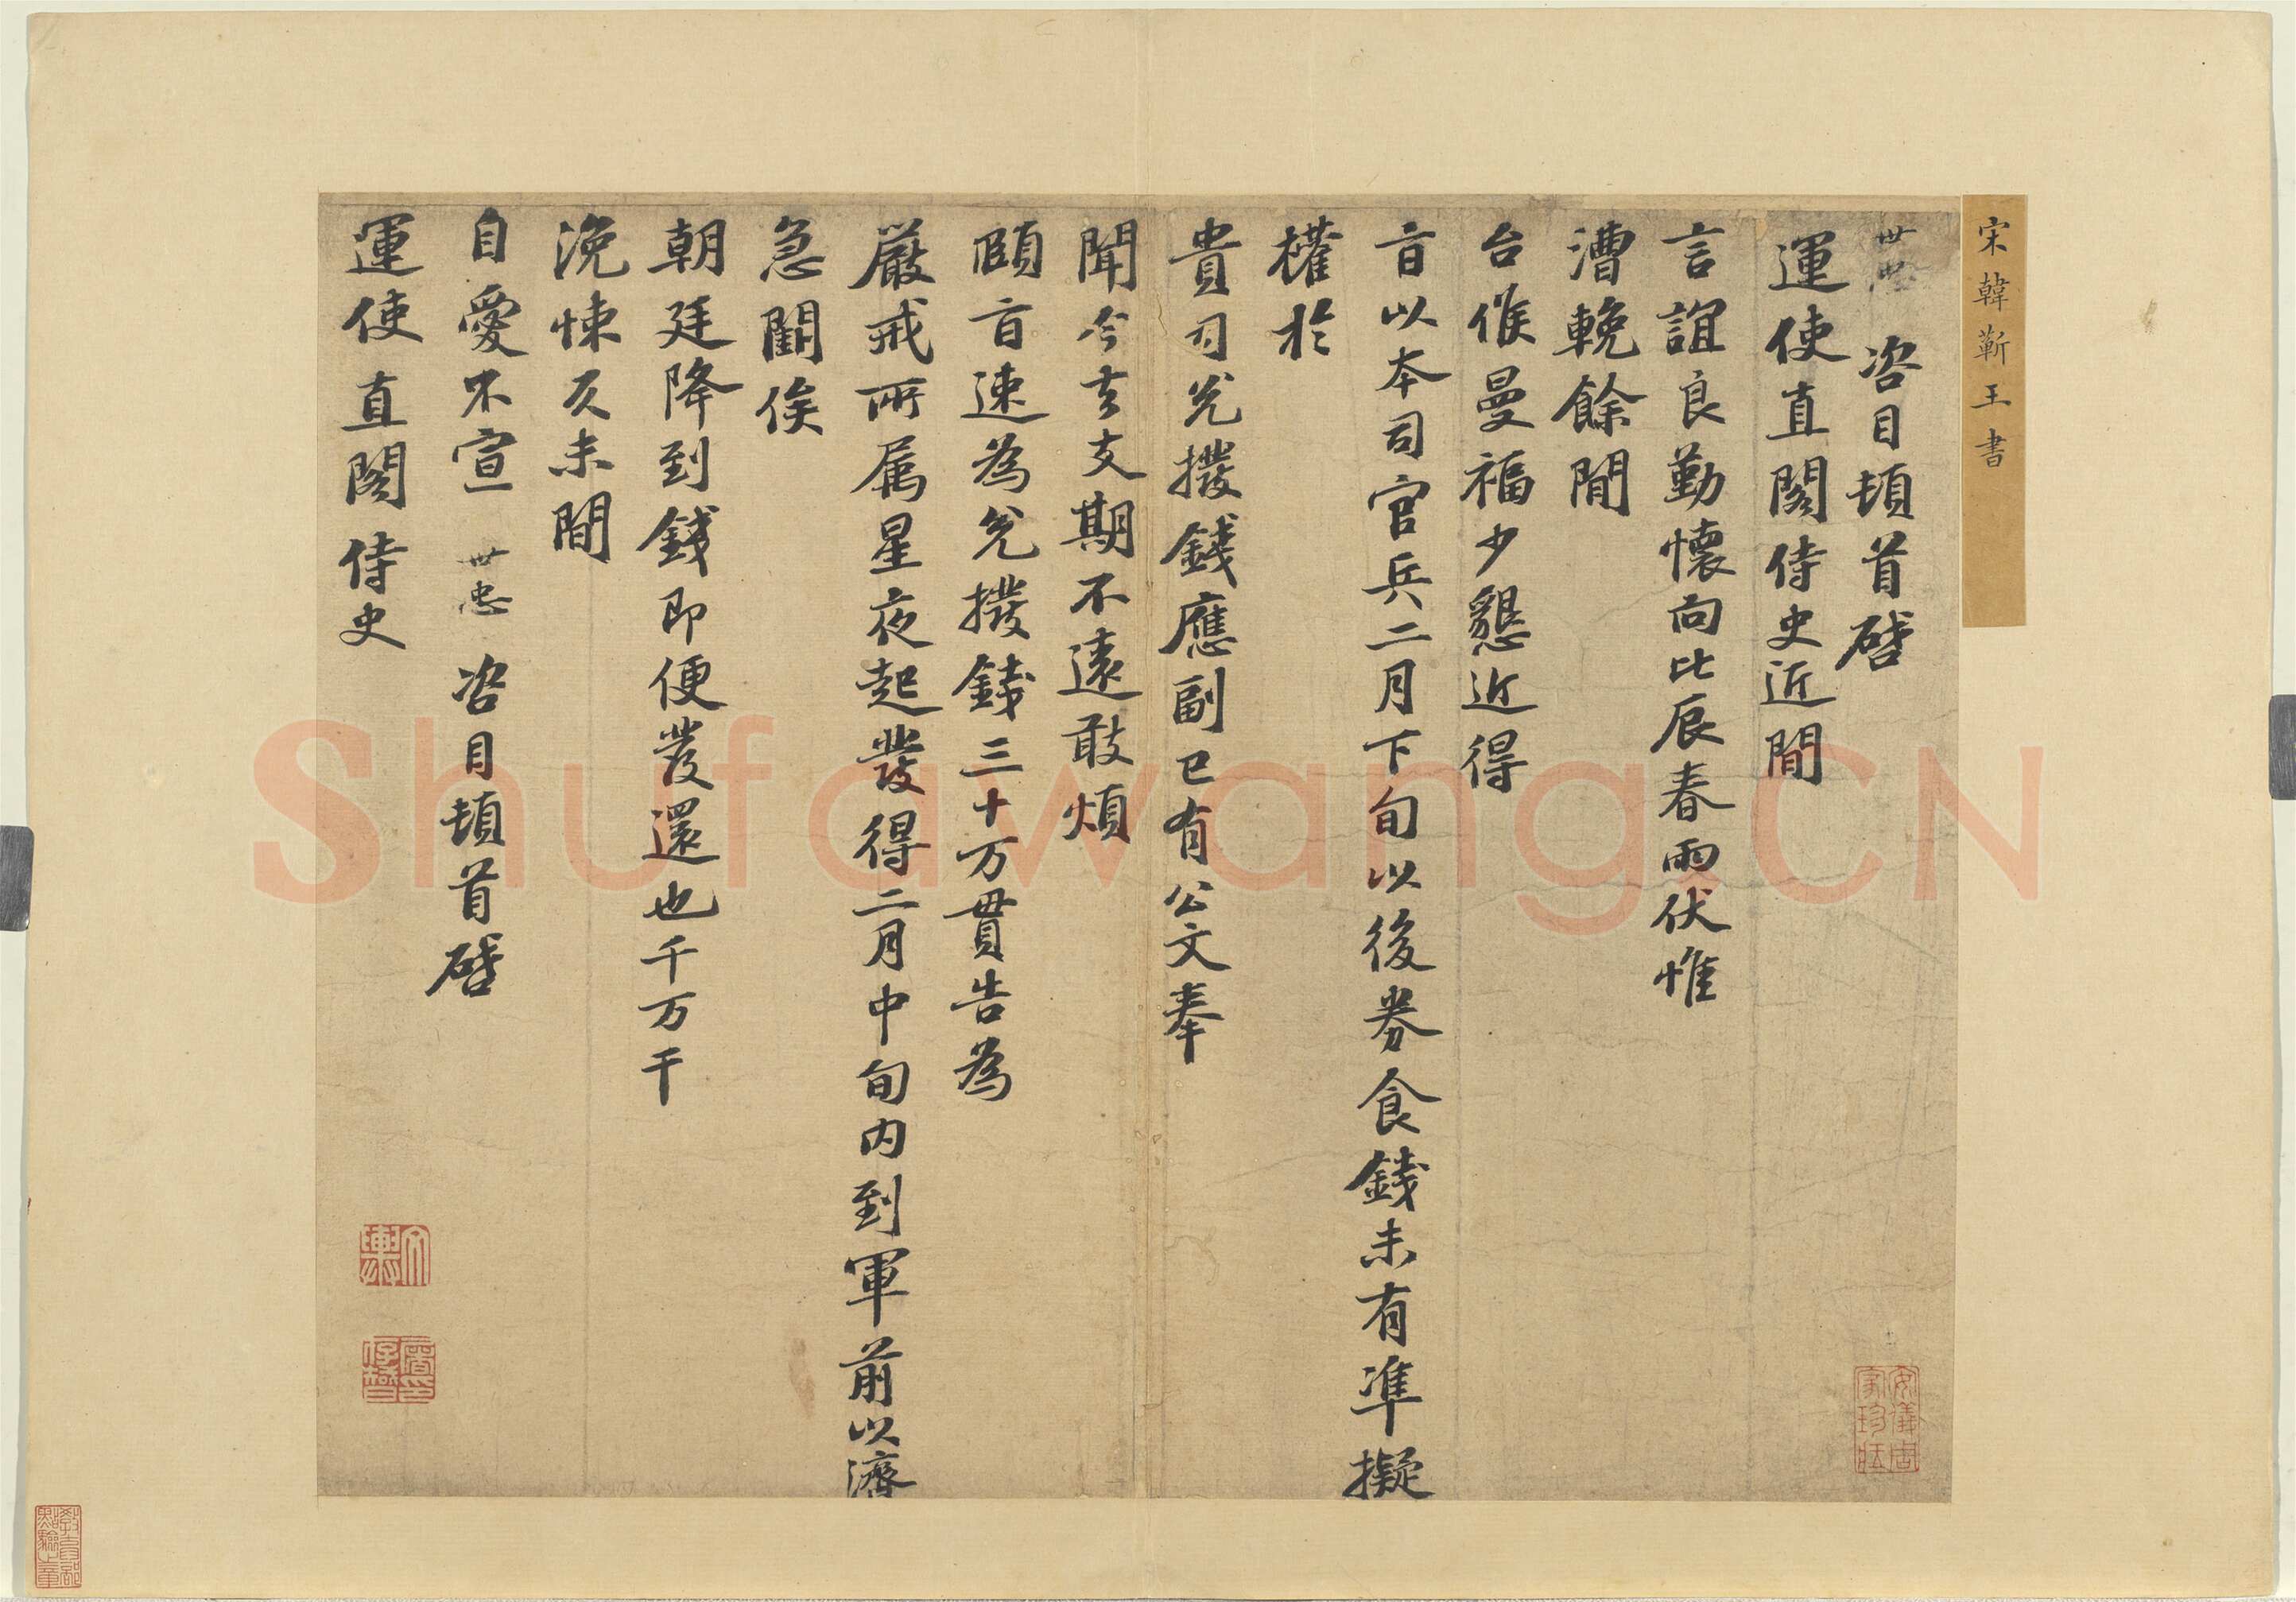 宋韓蘄王書
世忠 咨目頓首啓
運使直閣侍史近間
言誼良勤懷向比辰春雨伏惟
漕輓餘間
台候曼福少懇近得
旨以本司官兵二月下旬以後券食錢未有準擬
權於
貴司兌撥錢應副已有公文奉
聞今去支期不遠敢煩
頤旨速為兌撥錢三十万貫告為
嚴戒所属星夜起發得二月中旬内到軍前以濟
急闕俟
朝廷降到錢即便發還也千万千
浼悚久未間
自愛不宣 世忠 咨目頓首啓
運使直閣侍史
安儀周家珍藏
教育部點驗之章
Shufawang.CN